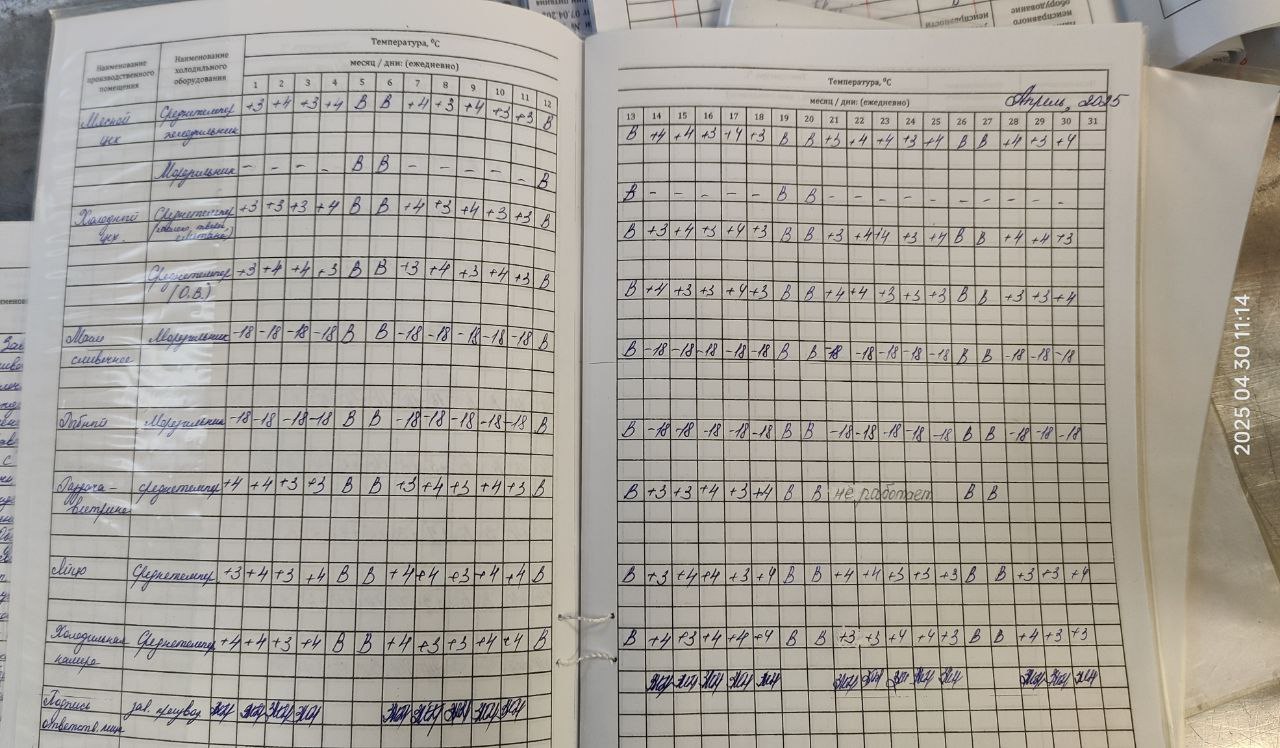 Температура, °С
месяц / дни: (ежедневно)
Наименование производственного помещения
Наименование холодильного оборудования
1 2 3 4 5 6 7 8 9 10 11 12
Мясной цех Среднетемпер холодильник +3 +4 +3 +4 В В +4 +3 +4 +3 +3 В
Морозильник - - - - В В - - - - - В
Холодный цех Среднетемпер +3 +3 +3 +4 В В +4 +3 +4 +3 +3 В
Среднетемпер (О.В.) +3 +4 +4 +3 В В +3 +4 +3 +4 +3 В
Масло сливочное Морозильник -18 -18 -18 -18 В В -18 -18 -18 -18 -18 В
Рыбный Морозильник -18 -18 -18 -18 В В -18 -18 -18 -18 -18 В
Раздача - витрина среднетемпер +4 +4 +3 +3 В В +3 +4 +3 +4 +3 В
Яйцо Среднетемпер +3 +4 +3 +4 В В +4 +4 +3 +4 +4 В
Холодильная камера Среднетемпер +4 +4 +3 +4 В В +4 +3 +3 +4 +4 В
Подпись ответств. лица зав. производ
Температура, °С
месяц / дни: (ежедневно) Апрель, 2025
13 14 15 16 17 18 19 20 21 22 23 24 25 26 27 28 29 30 31
В +4 +4 +3 +4 +3 В В +3 +4 +4 +3 +4 В В +4 +3 +4
В - - - - - В В - - - - - - - - - -
В +3 +4 +3 +4 +3 В В +3 +4 +4 +3 +4 В В +4 +4 +3
В +4 +3 +3 +4 +3 В В +4 +4 +3 +3 +3 В В +3 +3 +4
В -18 -18 -18 -18 -18 В В -18 -18 -18 -18 -18 В В -18 -18 -18
В -18 -18 -18 -18 -18 В В -18 -18 -18 -18 -18 В В -18 -18 -18
В +3 +3 +4 +3 +4 В В не работает В В
В +3 +4 +4 +3 +4 В В +4 +4 +3 +3 +3 В В +3 +3 +4
В +4 +3 +4 +4 +4 В В +3 +3 +4 +4 +3 В В +4 +3 +3
2025 04 30 11:14